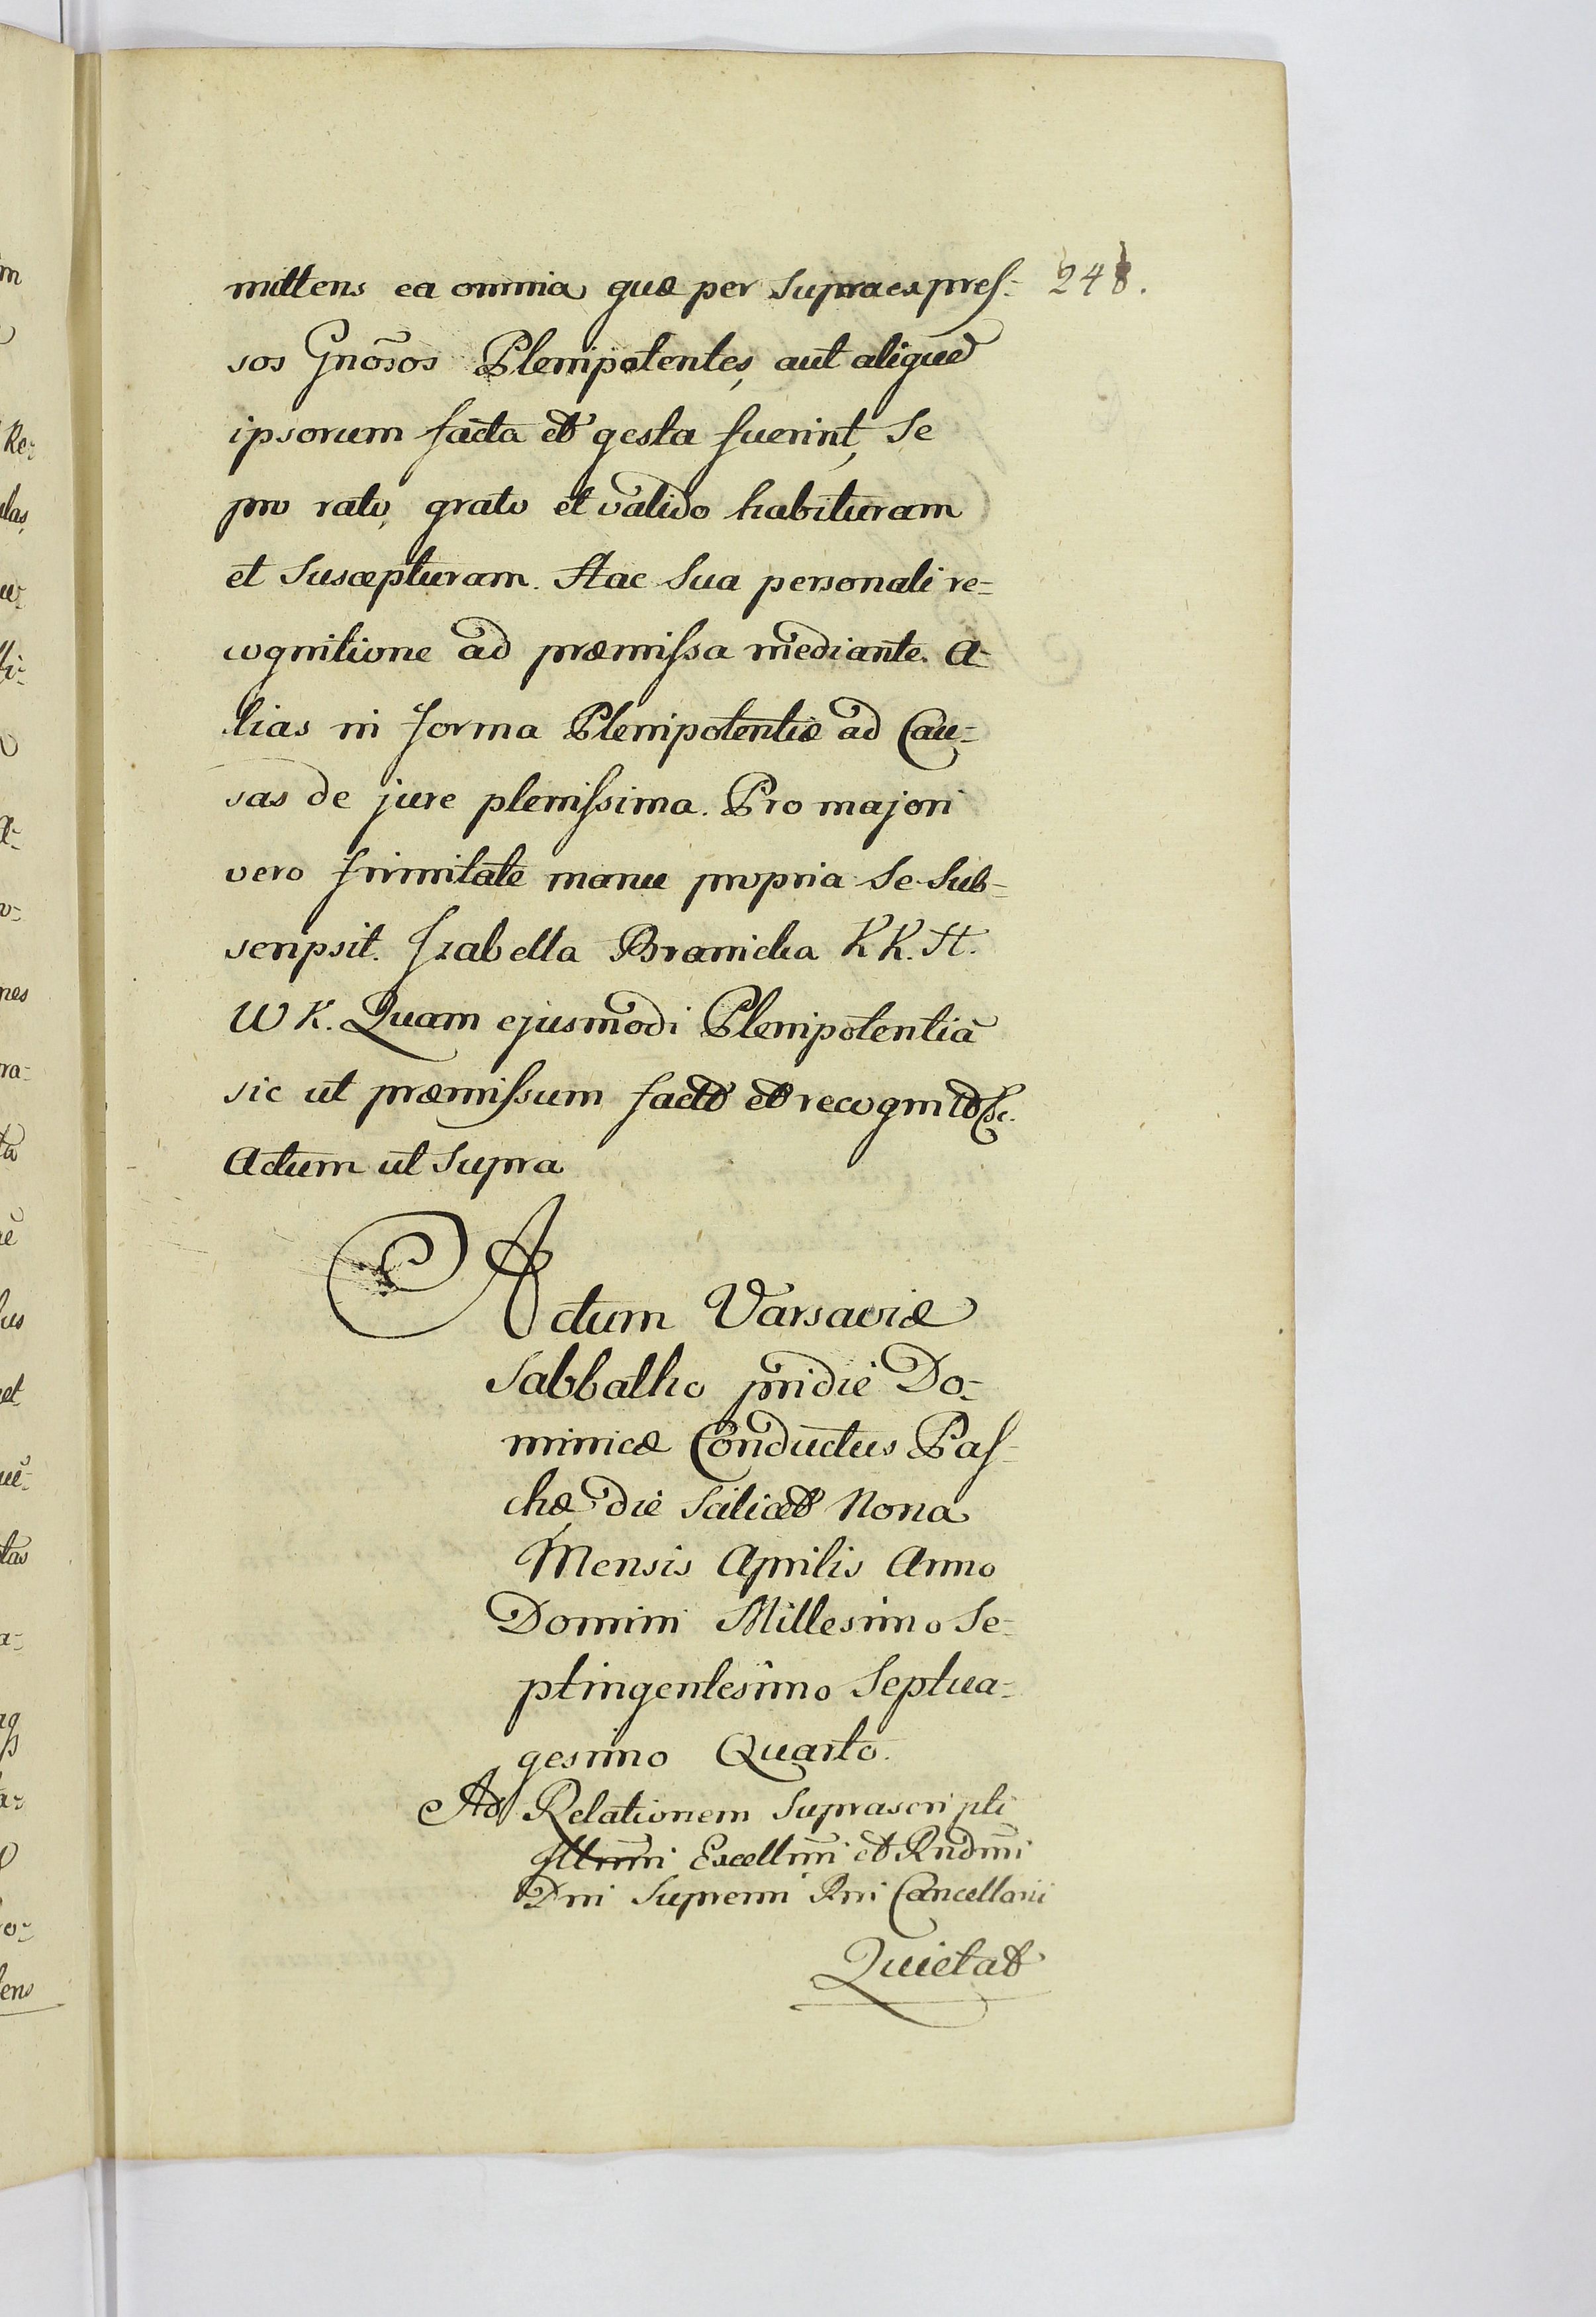 mittens ea omnia quæ per Supraexpres= 248.
sos Gnõsos Plenipotentes, aut aliquē
ipsorum facta et gesta fuerint, Se
pro rato, grato et valido habituram
et Suscepturam. Hac Sua personali re=
cognitione ad præmissa mediante. A=
lias in forma Plenipotentiæ ad Cau=
sas de jure plenissima. Pro majori
vero firmitate manu propria Se Sub=
scripsit. Izabella Branicka K K. H.
W K. Quam ejusmodi Plenipotentiã
sic ut præmissum factã et recognitã &c.
Actum ut Supra
Actum Varsaviæ
Sabbatho pridie Do=
minicæ Conductus Pas=
chæ, die Scilicet Nona
Mensis Aprilis Anno
Domini Millesimo Se=
ptingentesimo Septua=
gesimo Quarto.
Ad Relationem Suprascripti
Illrm̃i Excellm̃i et Rndm̃i
Dni Supremi Rni Cancellarii
Quietat